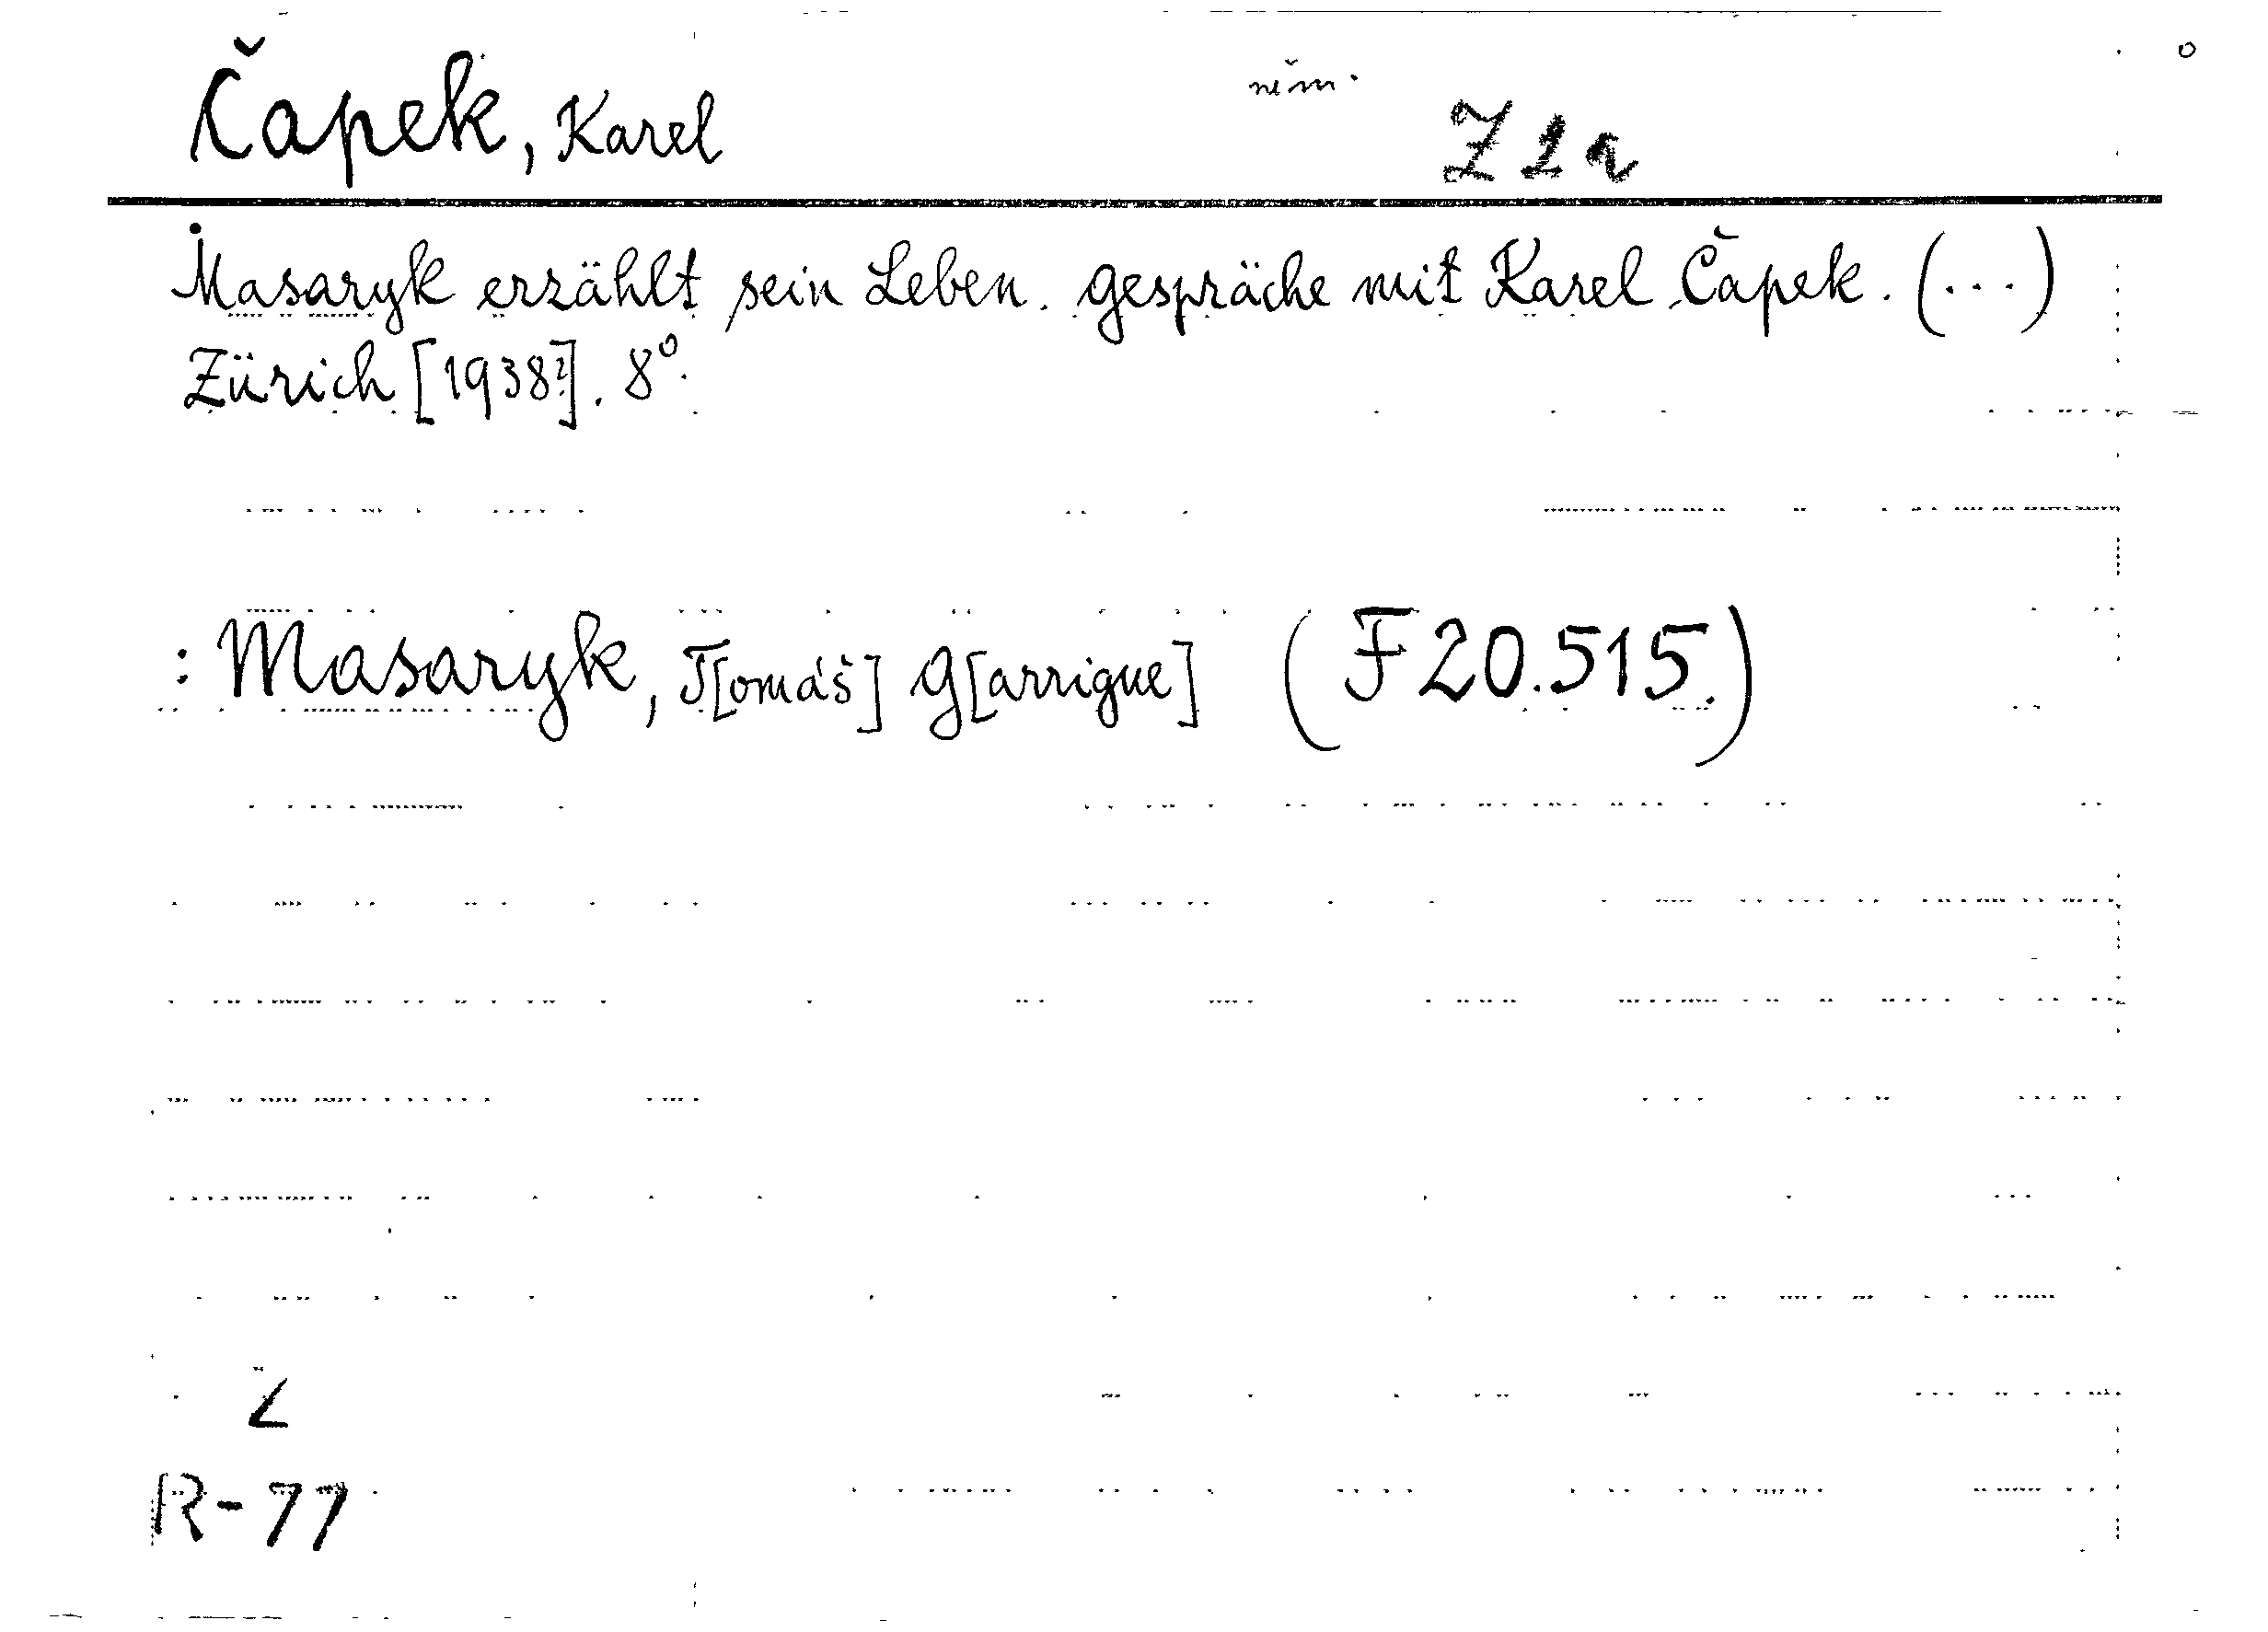 Čapek, Karel něm. Z 2a
Masaryk erzählt sein Leben. Gespräche mit Karel Čapek. (...)
Zürich [1938?]. 8°.
: Masaryk, T[omáš] G[arrigue] (F 20.515.)
Z
R-77